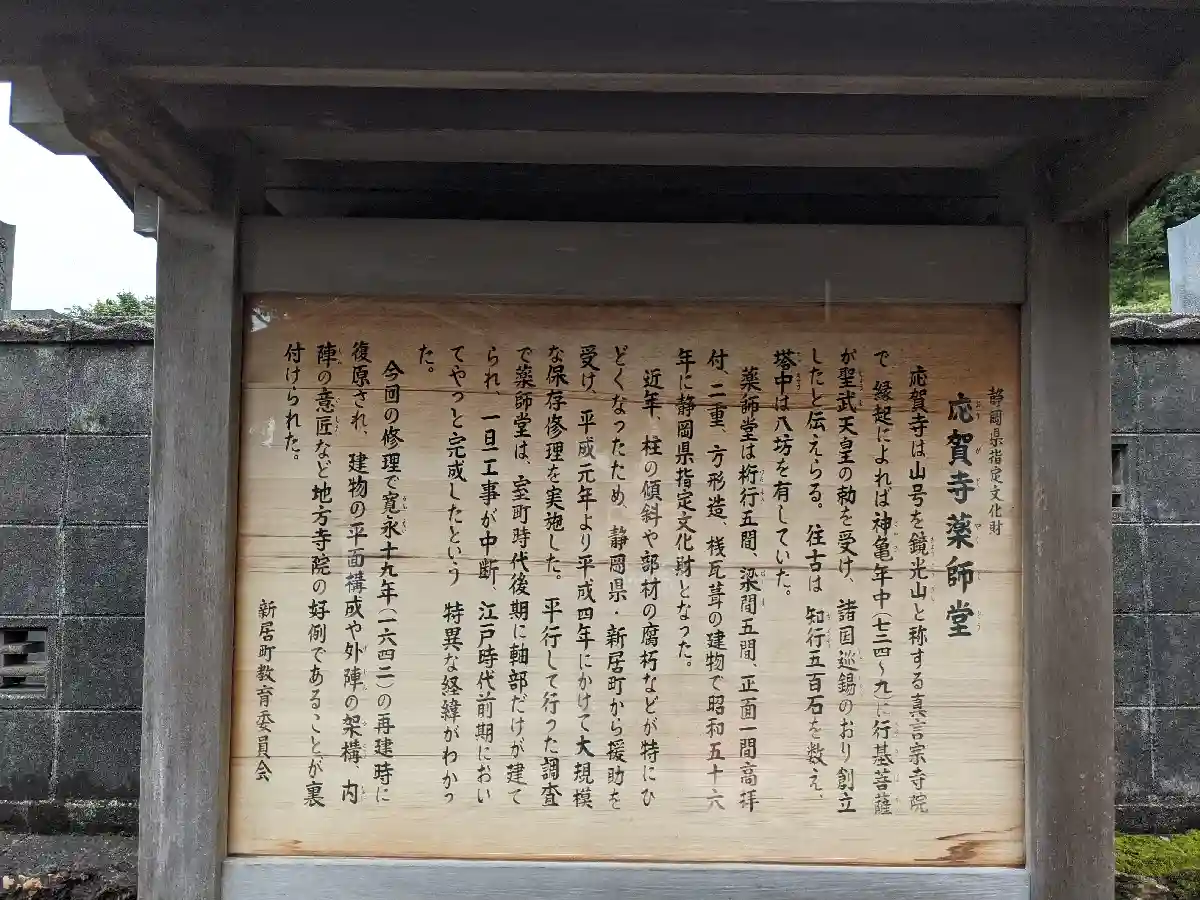 静岡県指定文化財
応賀寺薬師堂
応賀寺は山号を鏡光山と称する真言宗寺院
で 縁起によれば神亀年中(七二四~九)に行基菩薩
が聖武天皇の勅を受け、諸国巡錫のおり創立
したと伝えらる。往古は 知行五百石を数え、
塔中は八坊を有していた。
薬師堂は桁行五間、梁間五間、正面一間高拝
付、二重、方形造、桟瓦葺の建物で昭和五十六
年に静岡県指定文化財となった。
近年、柱の傾斜や部材の腐朽などが特にひ
どくなったため、静岡県・新居町から援助を
受け、平成元年より平成四年にかけて大規模
な保存修理を実施した。平行して行った調査
で薬師堂は、室町時代後期に軸部だけが建て
られ、一旦工事が中断、江戸時代前期におい
てやっと完成したという 特異な経緯がわかっ
た。
今回の修理で寛永十九年(一六四二)の再建時に
復原され、建物の平面構成や外陣の架構、内
陣の意匠など地方寺院の好例であることが裏
付けられた。
新居町教育委員会